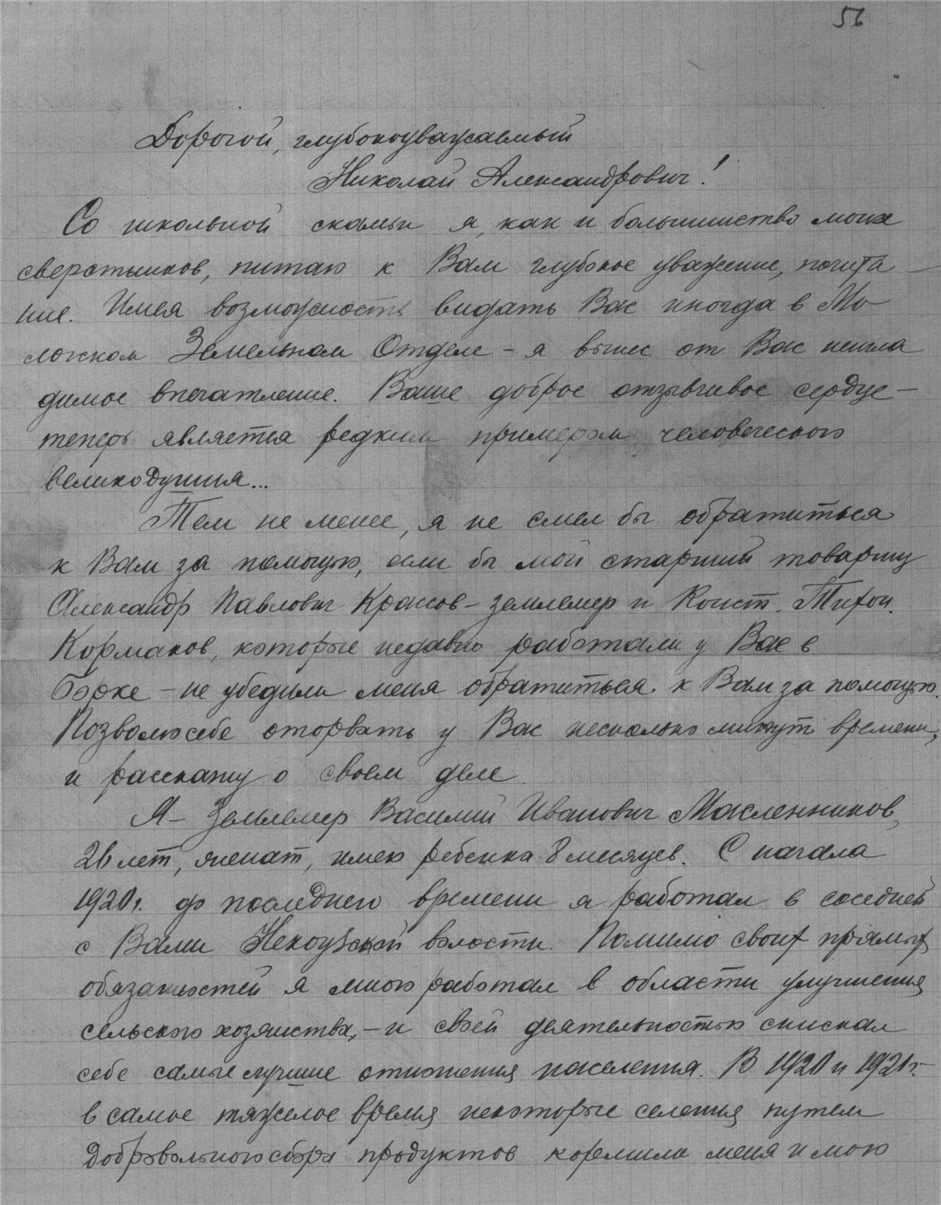 56
Дорогой, глубокоуважаемый
Николай Александрович!
Со школьной скамьи я, как и большинство моих
сверстников, питаю к Вам глубокое уважение, почита
ние. Имея возможность видать Вас иногда в Мо
логском Земельном Отделе – я вынес от Вас неизгла
димое впечатление. Ваше доброе отзывчивое сердце –
теперь является редким примером человеческого
великодушия...
Тем не менее, я не смел бы обратиться
к Вам за помощью, если бы мой старший товарищ
Александр Павлович Красов – землемер и Конст. Тихон.
Кормаков, которые недавно работали у Вас в
Борке – не убедили меня обратиться к Вам за помощью.
Позволю себе оторвать у Вас несколько минут времени,
и расскажу о своем деле
Я – землемер Василий Иванович Масленников,
26 лет, женат, имею ребенка 8 месяцев. С начала
1920 г. до последнего времени я работал в соседней
с Вами Некоузской волости. Помимо своих прямых
обязанностей я много работал в области улучшения
сельского хозяйства, – и своей деятельностью снискал
себе самые лучшие отношения населения. В 1920 и 1921 г.
в самое тяжелое время некоторые селения путем
добровольного сбора продуктов кормили меня и мою